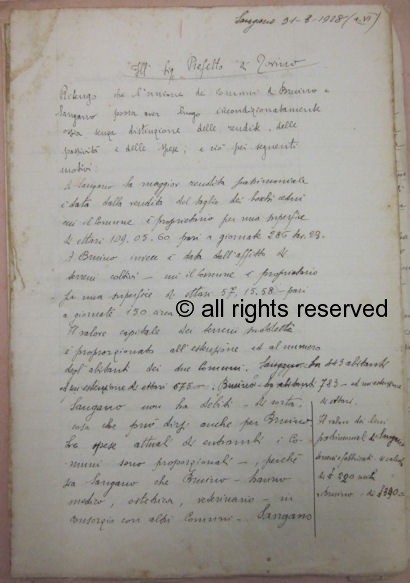 Sangano 31-3-1928 (a. VI)
Ill. Sig. Prefetto di Torino
Ritengo che l'unione dei Comuni di Bruino e
Sangano possa aver luogo incondizionatamente
ossia senza distinzione delle rendite, delle
passività e delle spese, e ciò pei seguenti
motivi:
A Sangano la maggior rendita patrimoniale
è data dalla vendita del taglio dei boschi cedui
cui il Comune è proprietario per una superficie
di ettari 109.05.60 pari a giornate 286 tav. 23.
A Bruino invece è data dall'affitto di
terreni coltivi - cui il Comune è proprietario
per una superficie di ettari 57.15.58 - pari
a giornate 150 area
© all rights reserved
Il valore capitale dei terreni suddetti
è proporzionato all'estensione ed al numero
degli abitanti dei due Comuni. Sangano ha 443 abitanti
ed un'estensione di ettari 675 - Bruino ha abitanti 783 - ed un'estensione
di ettari.
Sangano non ha debiti - di sorta.
cosa che può dirsi anche per Bruino
Le spese attuali di entrambi i Co-
muni sono proporzionali -, perchè
sia Sangano che Bruino - hanno
medico, ostetrica, veterinario - in
consorzio con altri Comuni. - Sangano
Il valore dei beni
patrimoniali di Sangano
terreni e fabbricati è
di £
e Bruino - di £